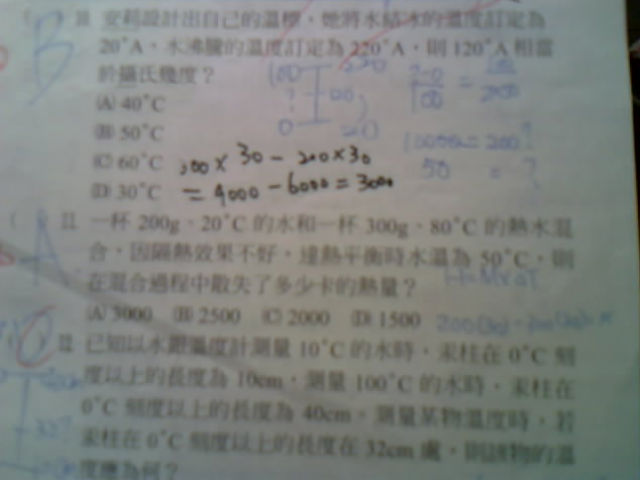 安莉設計出自己的溫標，她將水結冰的溫度訂定為
20˚A，水沸騰的溫度訂定為 220˚A，則 120˚A 相當
於攝氏幾度？
(A) 40˚C
(B) 50˚C
(C) 60˚C
(D) 30˚C
300×30－200×30
＝9000－6000＝3000
B
100 220
? 120
0 20
50 = ?
A
11 一杯 200g、20˚C 的水和一杯 300g、80˚C 的熱水混
合，因隔熱效果不好，達熱平衡時水溫為 50˚C，則
在混合過程中散失了多少卡的熱量？
(A) 3000 (B) 2500 (C) 2000 (D) 1500
12 已知以水銀溫度計測量 10˚C 的水時，汞柱在 0˚C 刻
度以上的長度為 10cm，測量 100˚C 的水時，汞柱在
0˚C 刻度以上的長度為 40cm，測量某物溫度時，若
汞柱在 0˚C 刻度以上的長度在 32cm 處，則該物的溫
度應為何？